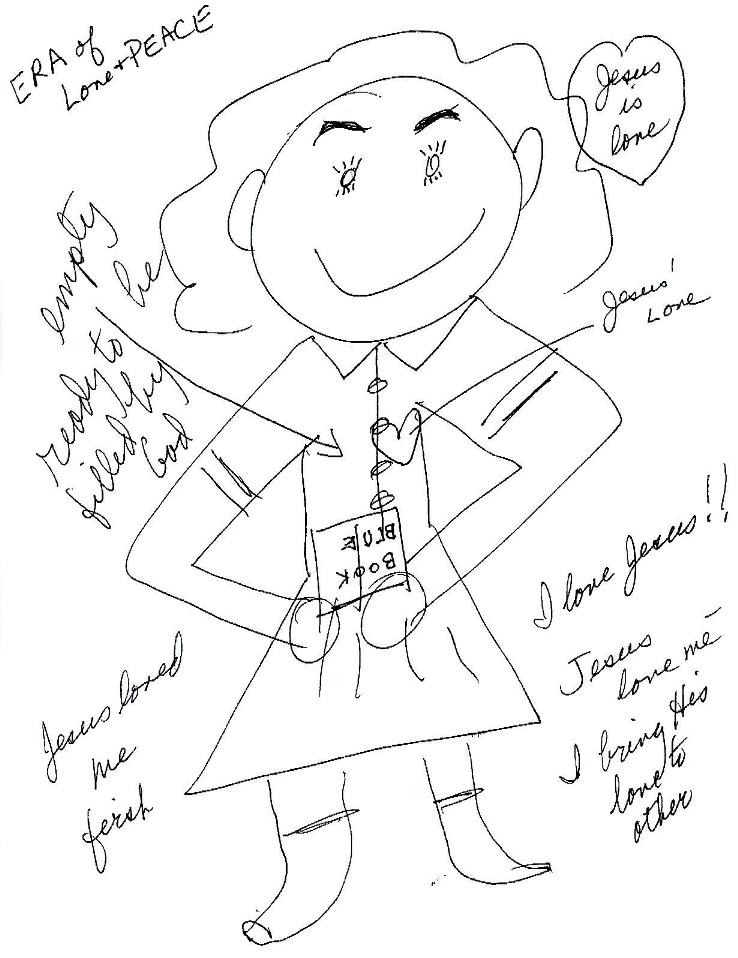 ERA of
Love + PEACE
Jesus
is
love
empty
ready to be
filled by
God
Jesus'
Love
BLUE
BOOK
I love Jesus!!
Jesus
love me -
I bring His
love to
other
Jesus loved
me
first